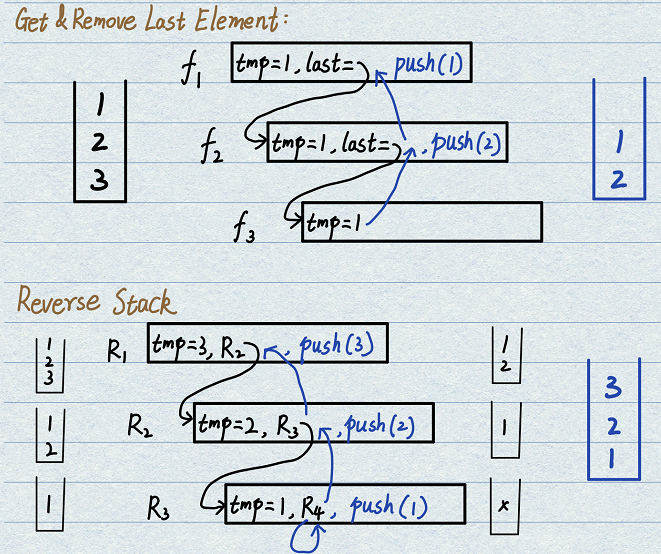 Get & Remove Last Element:
f1 tmp=1, last= push(1)
1
2
3
f2 tmp=1, last= , push(2)
1
2
f3 tmp=1
Reverse Stack
1
2
3
R1 tmp=3, R2 , push(3)
1
2
3
2
1
1
2
R2 tmp=2, R3 , push(2)
1
1
R3 tmp=1, R4, push(1)
x